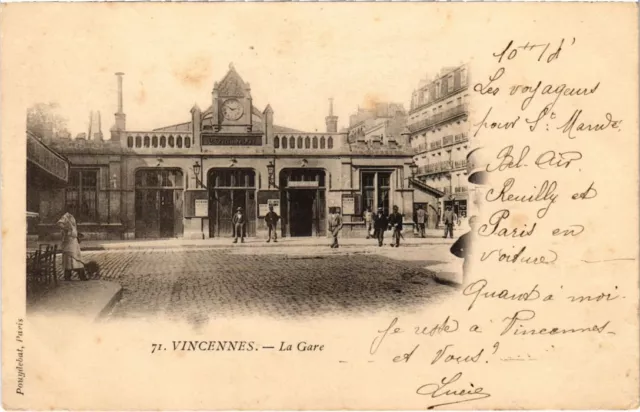 Les voyageurs
pour St. Mandé.
Bel-Air.
Reuilly et
Paris en
voiture
Quant à moi.
Je reste à Vincennes
et Vous?
Lucie
71. VINCENNES. — La Gare
Pouydebat, Paris